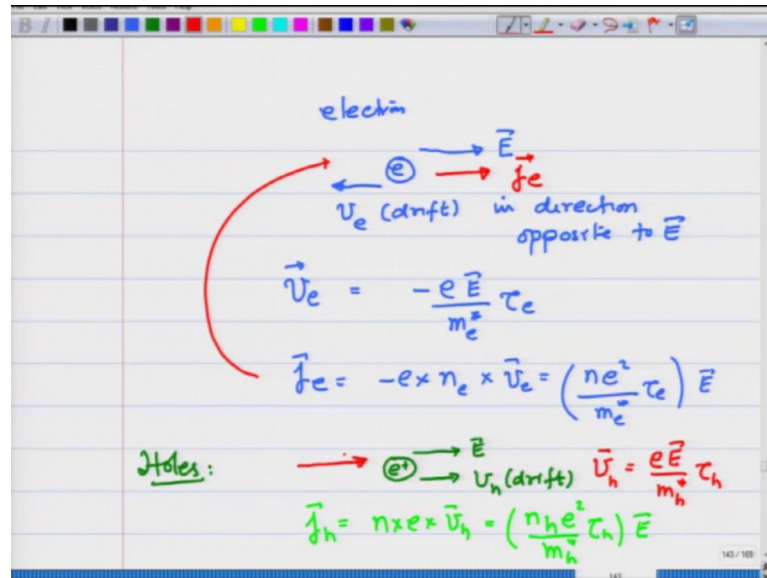 electron
E⃗
e j⃗e
v_e (drift) in direction
opposite to E⃗
v⃗_e = - eE⃗/m_e* τ_e
j⃗_e = -e × n_e × v⃗_e = (ne²/m_e* τ_e) E⃗
Holes: e+ E⃗
v_h (drift) v⃗_h = eE⃗/m_h* τ_h
j⃗_h = n×e×v⃗_h = (n_h e²/m_h* τ_h) E⃗
143 / 169
143